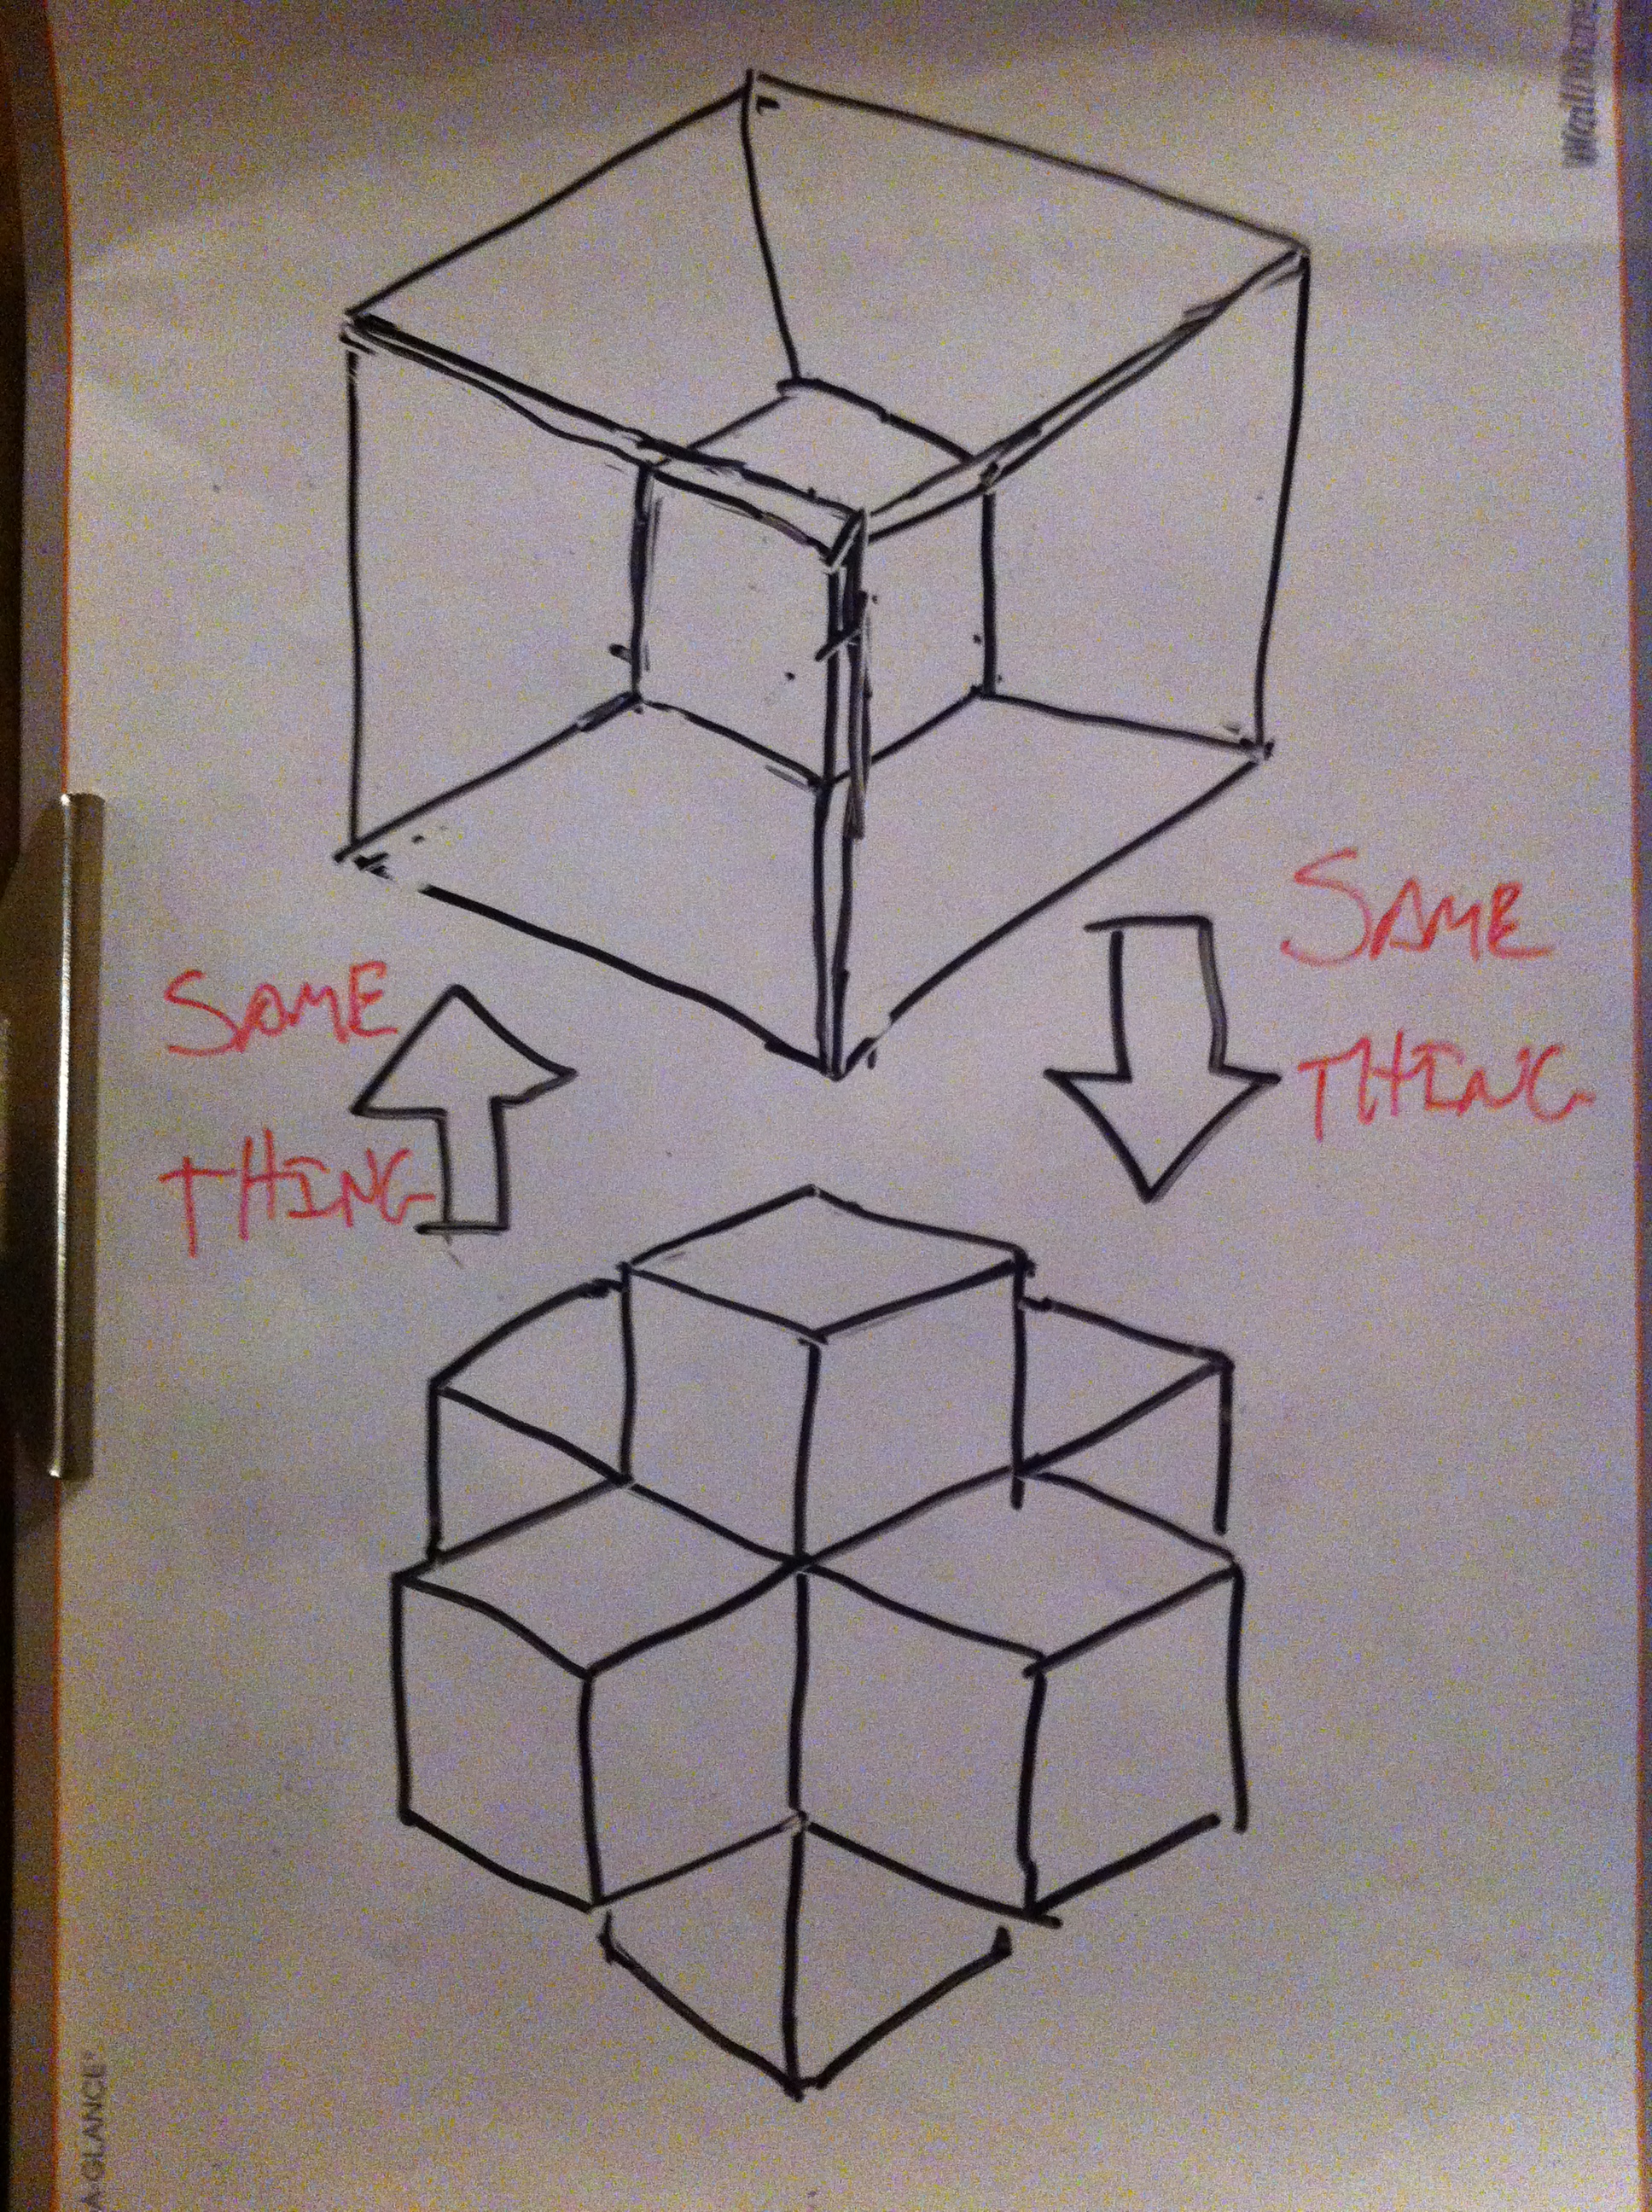 SAME
THING
SAME
THING
A-GLANCE®